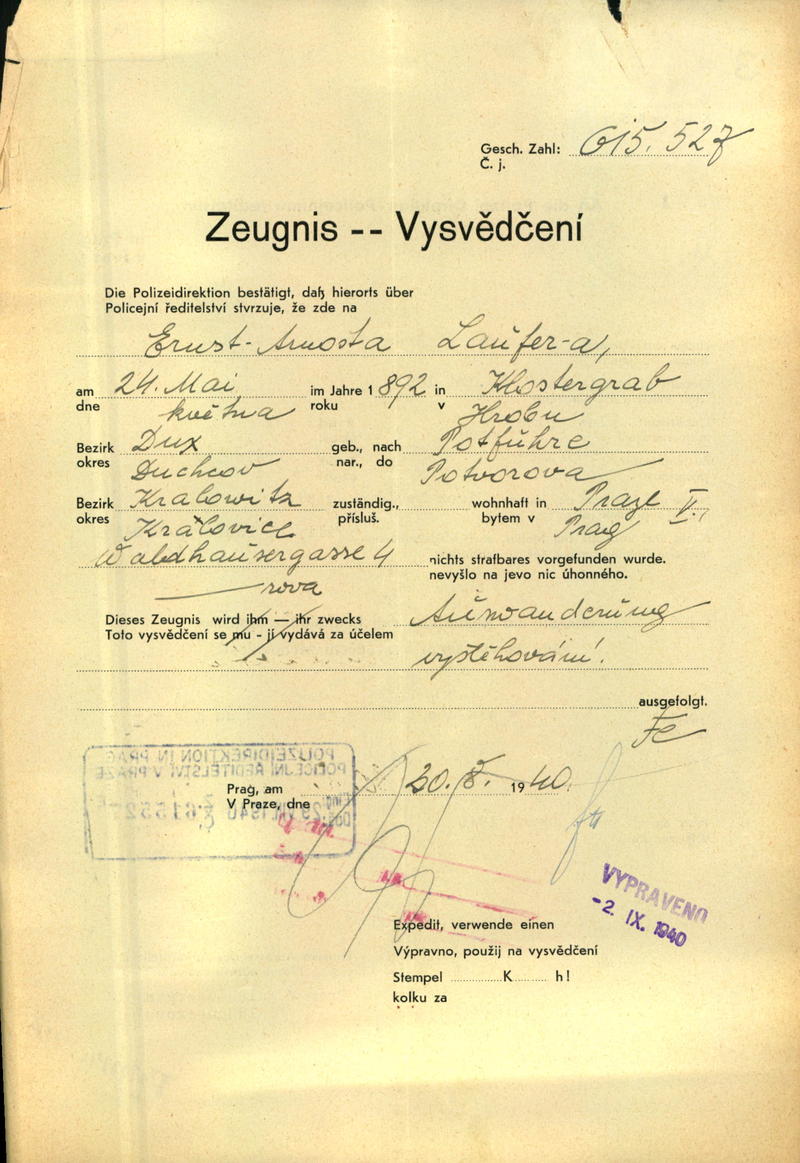 Gesch. Zahl: 615.527
Č. j.
Zeugnis -- Vysvědčení
Die Polizeidirektion bestätigt, daß hierorts über
Policejní ředitelství stvrzuje, že zde na
Ernst-Arnošta Laufer-a,
am 24. Mai im Jahre 1892 in Klostergrab
dne května roku v Hrobu
Bezirk Dux geb., nach Potfuhre
okres Duchcov nar., do Potvorova
Bezirk Kralowitz zuständig., wohnhaft in Praze II.,
okres Kralovice přísluš. bytem v Prag
Waldhausergasse 4 nichts strafbares vorgefunden wurde.
rova nevyšlo na jevo nic úhonného.
Dieses Zeugnis wird ihm — ihr zwecks Auswanderung
Toto vysvědčení se mu - jí vydává za účelem vystěhování.
ausgefolgt.
POLIZEIDIREKTION IN PRAG
POLICEJNÍ ŘEDITELSTVÍ V PRAZE
Prag, am 30. 8. 1940.
V Praze, dne
VYPRAVENO
-2. IX. 1940
Expedit, verwende einen
Výpravno, použij na vysvědčení
Stempel ............K........ h!
kolku za